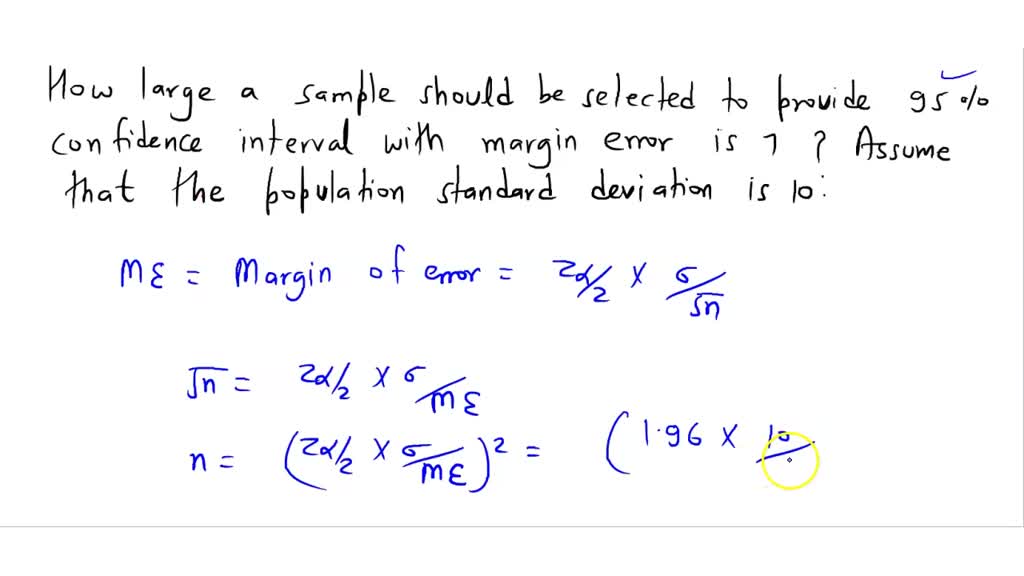 How large a sample should be selected to provide 95%
confidence interval with margin error is 7 ? Assume
that the population standard deviation is 10:
Mε = Margin of error = zα/2 × σ/√n
√n = zα/2 × σ/Mε
n = (zα/2 × σ/Mε)² = (1.96 × 10/